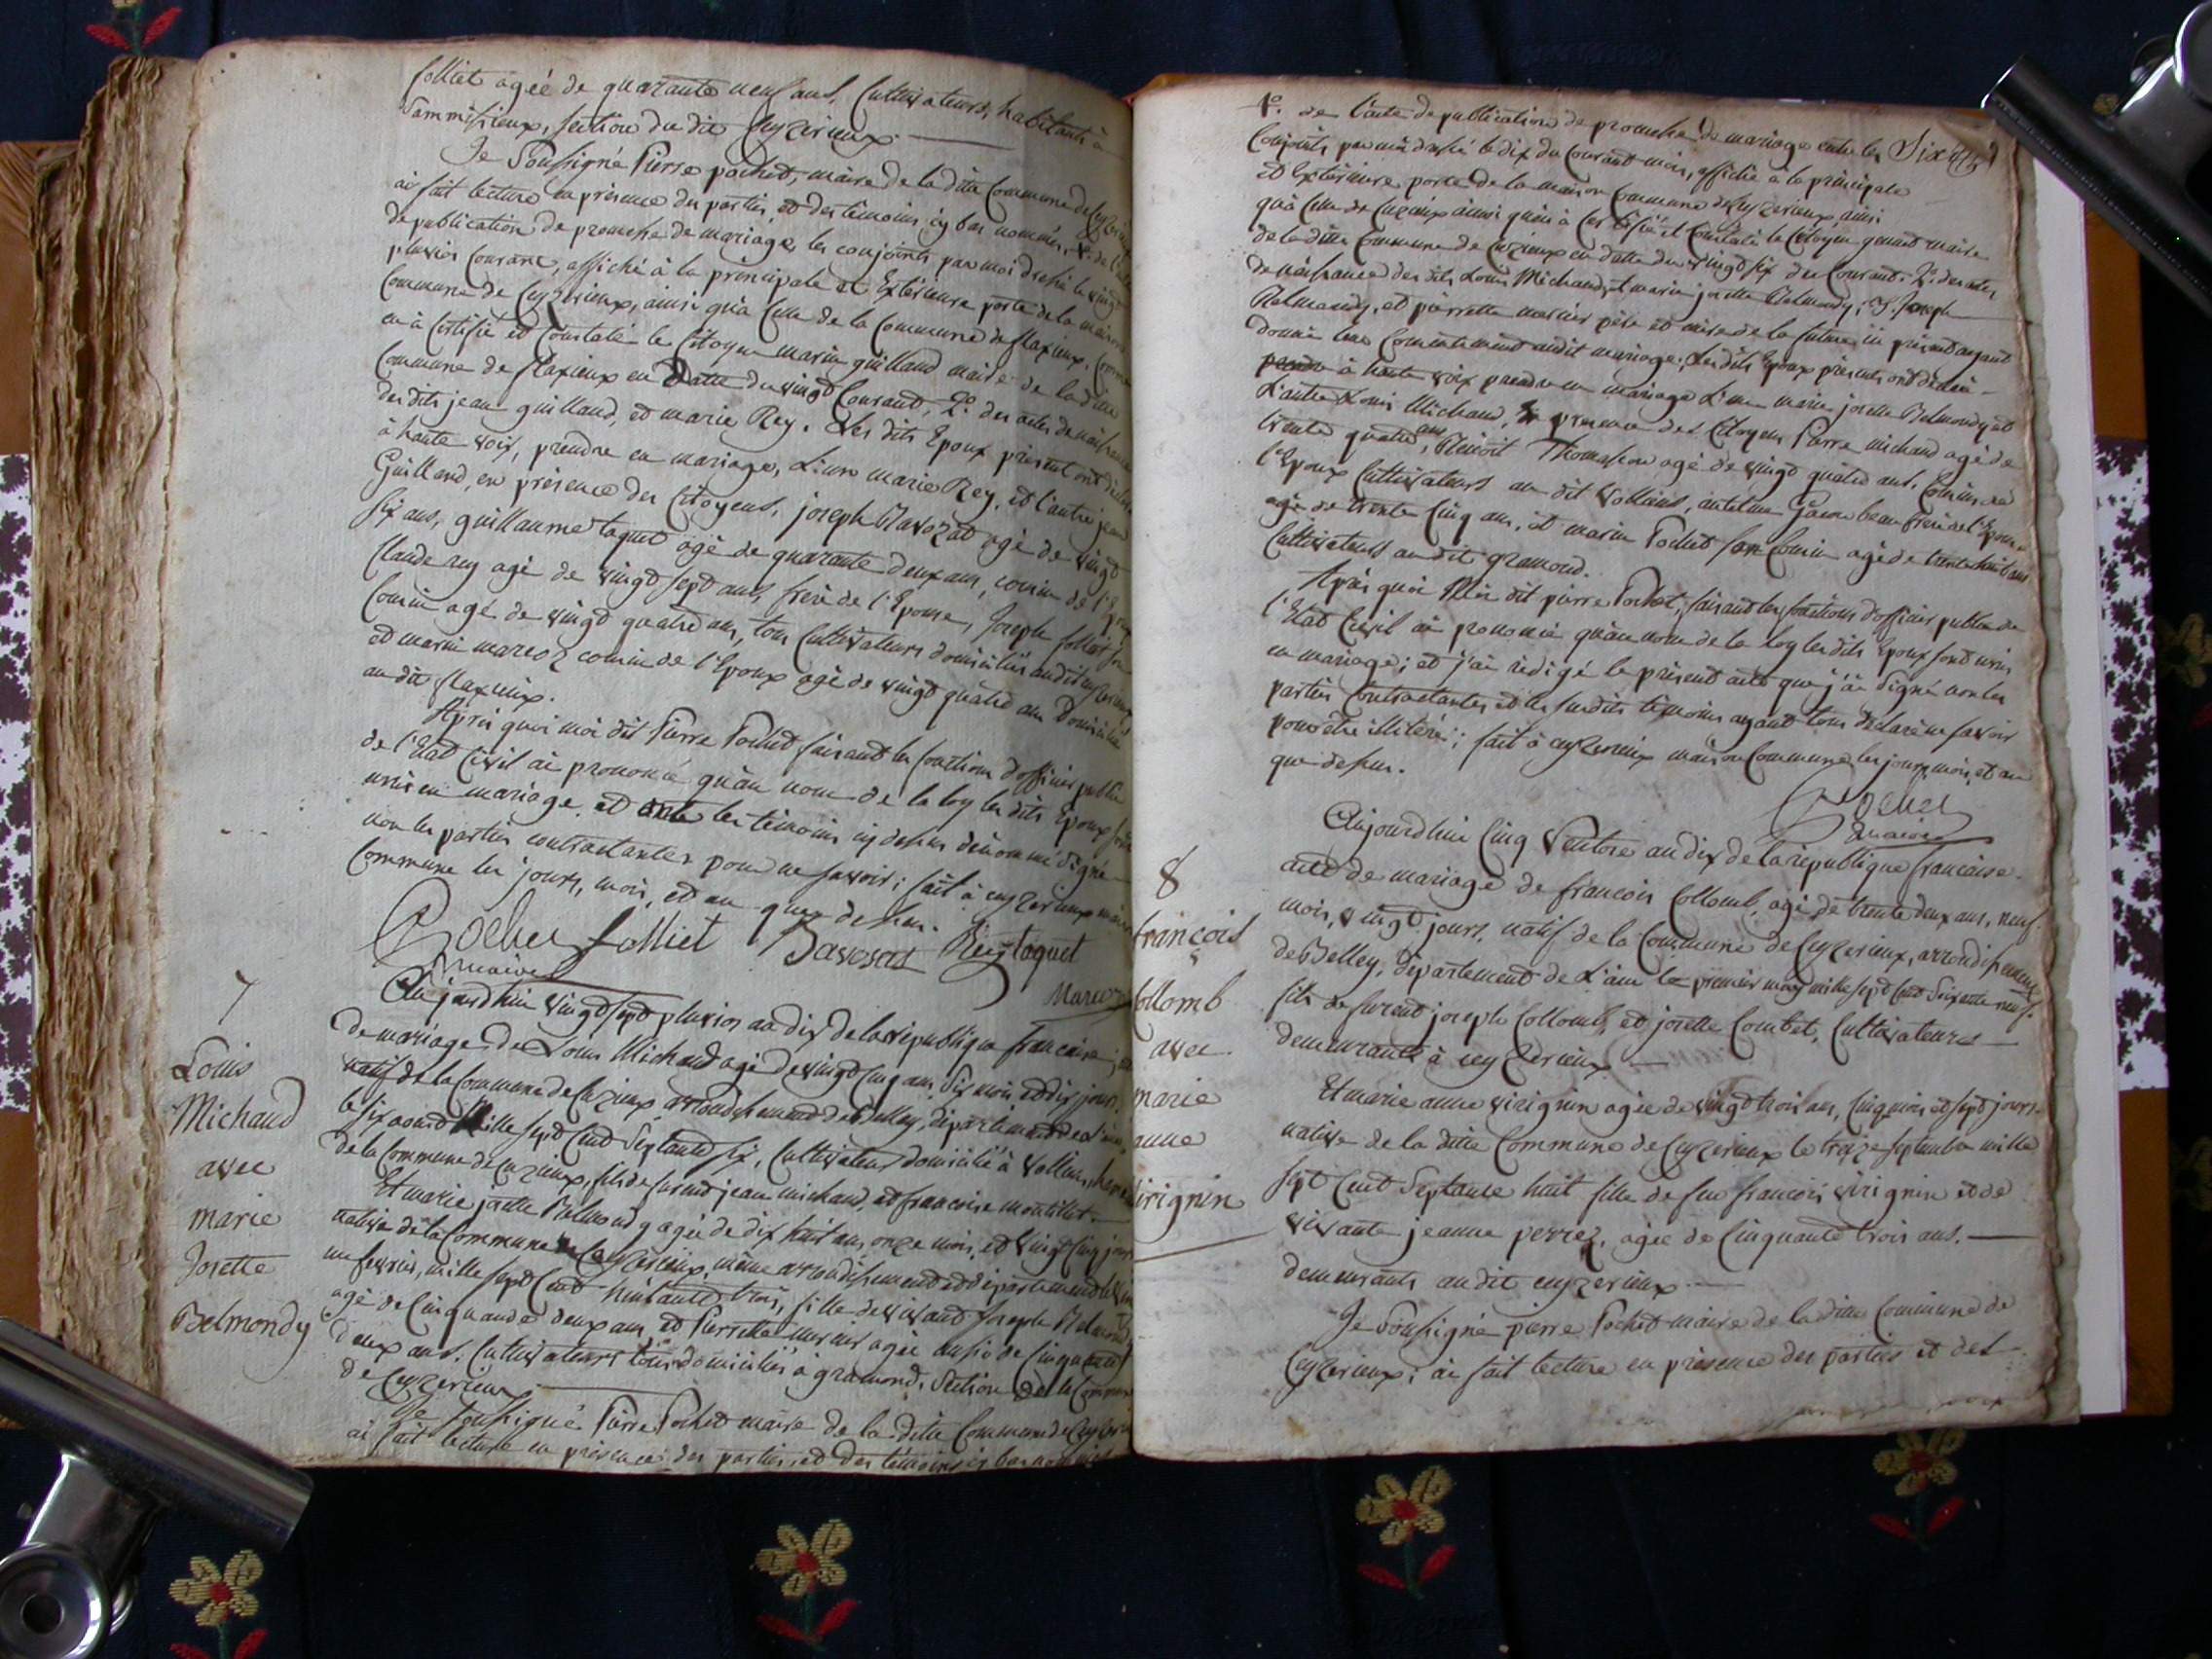 Colliet agée de quarante neuf ans, Cultivateurs, habitants à
Sammisieux, section du dit Ceyzerieux.
Je Soussigné Pierre pochet, maire de la dite Commune de Ceyzerieux
ai fait lecture en présence des parties et des témoins, cy bas nommés, 1º. de l'acte
de publication de promesse de mariage, les conjoints par moi dressé le vingt
pluviose Courant, affiché à la principale et Extérieure porte de la maison
Commune de Ceyzerieux, ainsi qu'à Celle de la Commune de flaxieux, Comme
en à Certifié et Constaté le Citoyen marin guilland maire de la dite
Commune de flaxieux en Datte du vingt Courant, 2º. des actes de naissance
des dits jean guilland, et marie Rey. Les dits Epoux présent ont déclaré
à haute voix, prendre en mariage, L'un marie Rey, et l'autre jean
Guilland, en présence des Citoyens, joseph Bavozat agé de vingt
six ans, guillaume toquet agé de quarante deux ans, cousin de l'Epoux
Claude rey agé de vingt sept ans, frère de l'Epouse, Joseph folliet son
Cousin agé de vingt quatre ans, tous Cultivateurs domiciliés audit Ceyzerieux
et marin marcoz cousin de l'Epoux agé de vingt quatre ans Domicilié
au dit flaxieux.
Après quoi moi dit Pierre Pochet faisant les fonctions d'officier public
de l'Etat Civil ai prononcé qu'au nom de la loy les dits Epoux sont
unis en mariage, et les témoins cy dessus dénommé signé
non les parties contractantes pour ne savoir; fait à ceyzerieux maison
Commune les jours, mois, et an que dessus.
Pochet folliet Bavozat Rey toquet
maire
Marcoz
7
Louis
Michaud
avec
marie
Josette
Belmondy
Aujourdhui vingt sept pluviose an dix de la république francaise; acte
de mariage de Louis Michaud agé de vingt cinq ans, six mois et dix jours,
natif de la Commune de Cuzieux arrondissement de Belley, département de l'ain,
le six aoust Mille sept Cent Septante six, Cultivateur domicilié à Vollien, hameau
de la Commune de Cuzieux, fils de furent jean michaud, et francoise montillet.
Et marie josette Belmondy agée de dix huit ans, onze mois, et vingt cinq jours
native de la Commune de Ceyzerieux, même arrondissement et département le
un fevrier, mille sept Cent huitante trois, fille de vivant Joseph Belmondy
agé de Cinquante deux ans, et Pierrette mercier agée aussi de Cinquante
deux ans. Cultivateurs tous domiciliés à gramond, Section de la Commune
de Ceyzerieux.
Je soussigné Pierre Pochet maire de la ditte Commune de Ceyzerieux
ai fait lecture en présence des parties, et des témoins cy bas nommés
Six
1º. de l'acte de publication de promesse de mariage entre les
Conjoints par moi dressé le dix du Courant mois, affiché à la principale
et Extérieure porte de la maison Commune de Ceyzerieux, ainsi
qu'à Celle de Cuzieux ainsi qu'en à Certifié et Constaté le Citoyen genand maire
de la ditte Commune de Cuzieux en datte du vingt six du Courant. 2º. des actes
de naissance des dits Louis Michaud et marie josette Belmondy; 3º. Joseph
Belmondy, et pierrette mercier père et mère de la future ici présent ayant
donné leur Consentement audit mariage; Les dits Epoux présents ont déclaré
à haute voix prendre en mariage L'un marie josette Belmondy et
L'autre Louis Michaud, en presence des Citoyens Pierre michaud agé de
trente quatre ans, Benoit Thomasson agé de vingt quatre ans, Cousins de
l'Epoux Cultivateurs au dit Vollien, antelme Gacon beau frère de l'Epouse
agé de trente Cinq ans, et marin Pochet son Cousin agé de trente huit ans
Cultivateurs au dit gramond.
Après quoi Moi dit pierre Pochet, faisant les fonctions d'officier public de
l'Etat Civil ai prononcé qu'au nom de la loy les dits Epoux sont unis
en mariage; et j'ai rédigé le présent acte que j'ai signé non les
parties Contractantes et les susdits témoins ayant tous déclaré ne savoir
pour être illitéré; fait à ceyzerieux maison Commune les jours, mois, et an
que dessus.
Pochet
maire
8
françois
Collomb
avec
marie
anne
virignin
Aujourdhui Cinq Ventose an dix de la république francaise.
acte de mariage de francois Collomb, agé de trente deux ans, neuf
mois, vingt jours, natif de la Commune de Ceyzerieux, arrondissement
de Belley, département de L'ain le premier may mille sept Cent Soixante neuf.
fils de furent joseph Collomb, et josette Combet, Cultivateurs
demeurants à ceyzerieux.
Et marie anne virignin agée de vingt trois ans, Cinq mois et sept jours.
native de la ditte Commune de Ceyzerieux le treize septembre mille
sept Cent Septante huit fille de feu francois virignin et de
vivante jeanne perret, agée de Cinquante trois ans.
demeurants au dit ceyzerieux.
Je soussigné pierre Pochet maire de la ditte Commune de
Ceyzerieux; ai fait lecture en présence des parties et des